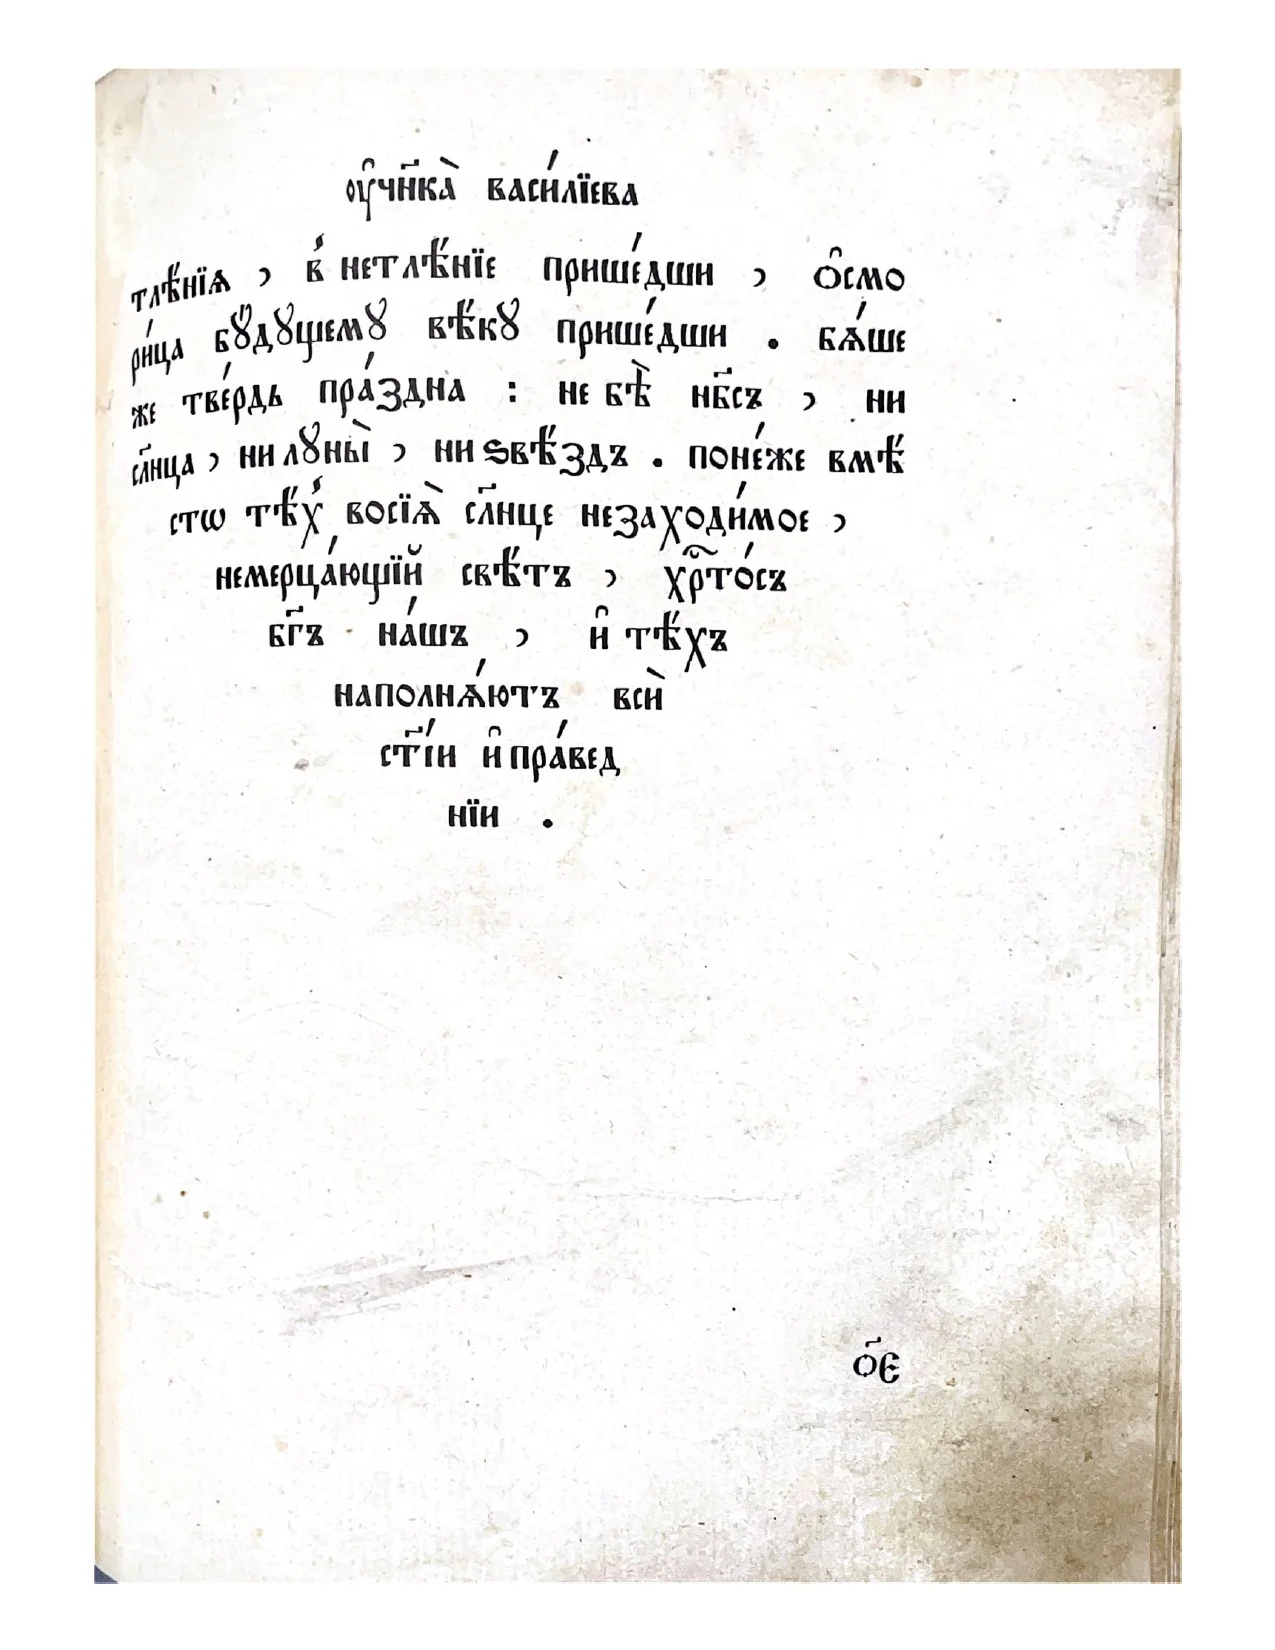 ѹ҆чн҃ка̀ васи́лїева
тлѣ́нїѧ , в̾ нетлѣ́нїе прише́дши , ѻ҆смо
ри́ца бꙋ́дꙋщемꙋ вѣ́кꙋ прише́дши . бѧ́ше
же тве́рдь пра́здна : не бѣ̀ нб҃съ , ни
сл҃нца , ни лꙋны̀ , ни ѕвѣ́здъ . поне́же вмѣ́
стѡ тѣ́х̾ восїѧ̀ сл҃нце незаходи́мое ,
немерца́ющїй свѣ́тъ , хрⷭ҇то́съ
бг҃ъ на́шъ , и҆ тѣ́хъ
наполнѧ́ютъ всѝ
ст҃і́и и҆ пра́вед
нїи .
ѻ҃є